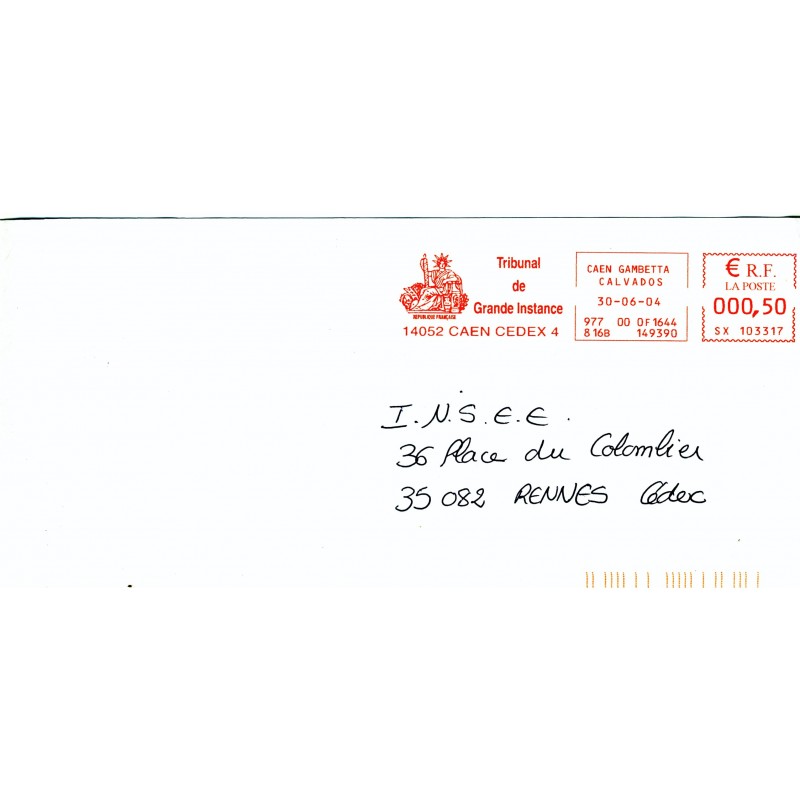 Tribunal
de
Grande Instance
REPUBLIQUE FRANÇAISE
14052 CAEN CEDEX 4
CAEN GAMBETTA
CALVADOS
30-06-04
977 00 0F1644
816B 149390
€ R.F.
LA POSTE
000,50
SX 103317
I.N.S.E.E.
36 Place du Colombier
35082 RENNES Cédex